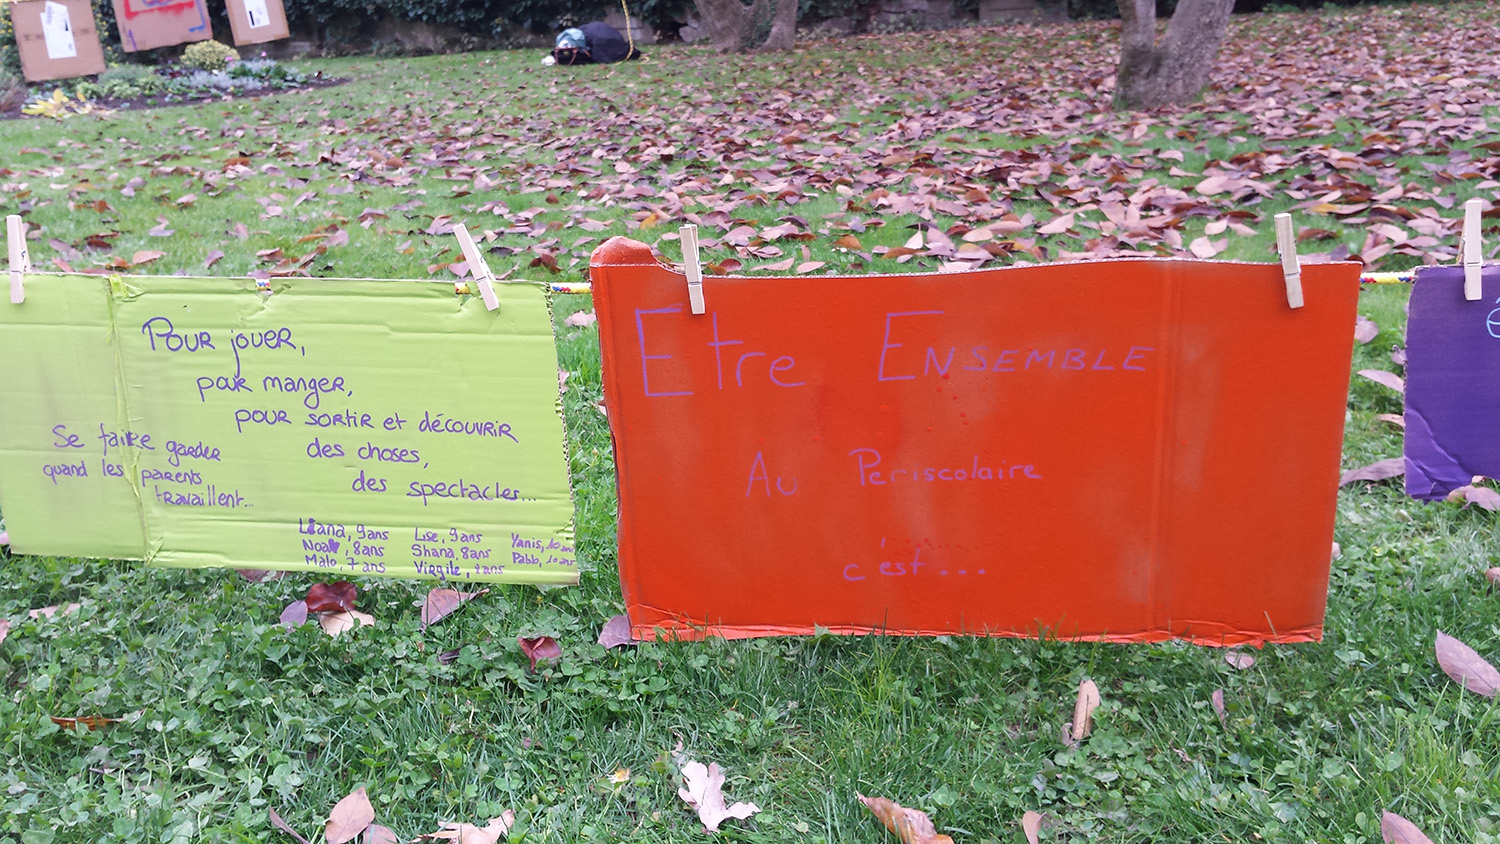 Pour jouer,
pour manger,
pour sortir et découvrir
des choses,
des spectacles...
Se faire garder
quand les parents
travaillent...
Liana, 9 ans
Noa, 8 ans
Malo, 7 ans
Lise, 9 ans
Shana, 8 ans
Virgile, ans
Yanis, 10 ans
Pablo, 10 ans
Etre ENSEMBLE
Au Periscolaire
c'est...